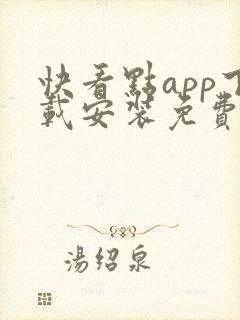 快看點app下
載安裝免費
湯紹泉